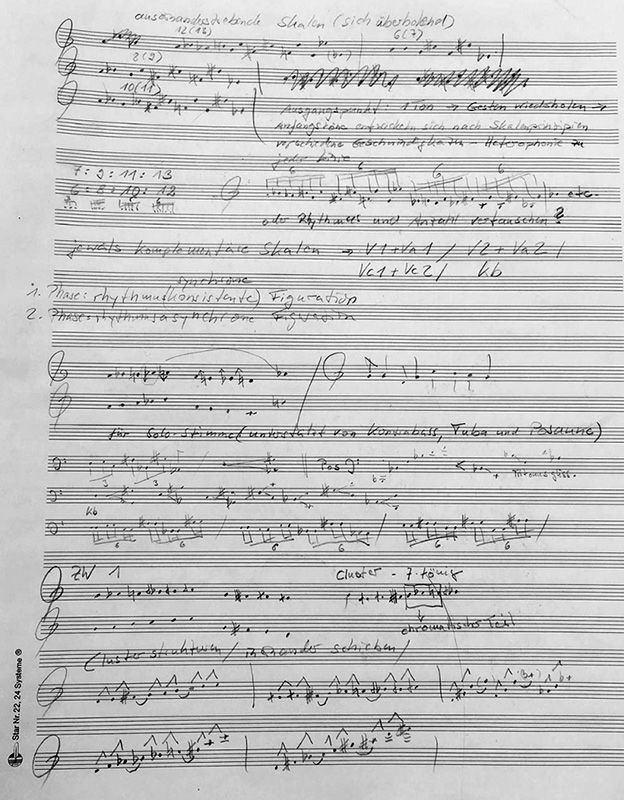 auseinanderstrebende Skalen (sich überholend)
12(13) 6(7)
8(9)
10(11)
Ausgangspunkt: 1 Ton → Gesten wiederholen →
Anfangstöne entwickeln sich nach Skalenprinzipien
verschiedene Geschwindigkeiten - Heterophonie zu
jede Linie
7:9:11:13
6:8:10:12
6 6 6 6
etc.
oder Rhythmus und Anzahl vertauschen?
jeweils komplementäre Skalen → V1+Va1 / V2+Va2 /
Vc1+Vc2 / Kb
synchrone
1. Phase: rhythmuskonsistente) Figuration
2. Phase: rhythmusasynchrone Figuration
für Solo-Stimme (unterstützt von Kontrabass, Tuba und Posaune)
3 3
Pos
Kb
6 6 6 6 6 6
ZW 1
Cluster - 7-tönig
chromatischer Teil
Clusterstrukturen / ineinander schieben /
Star Nr. 22, 24 Systeme ®